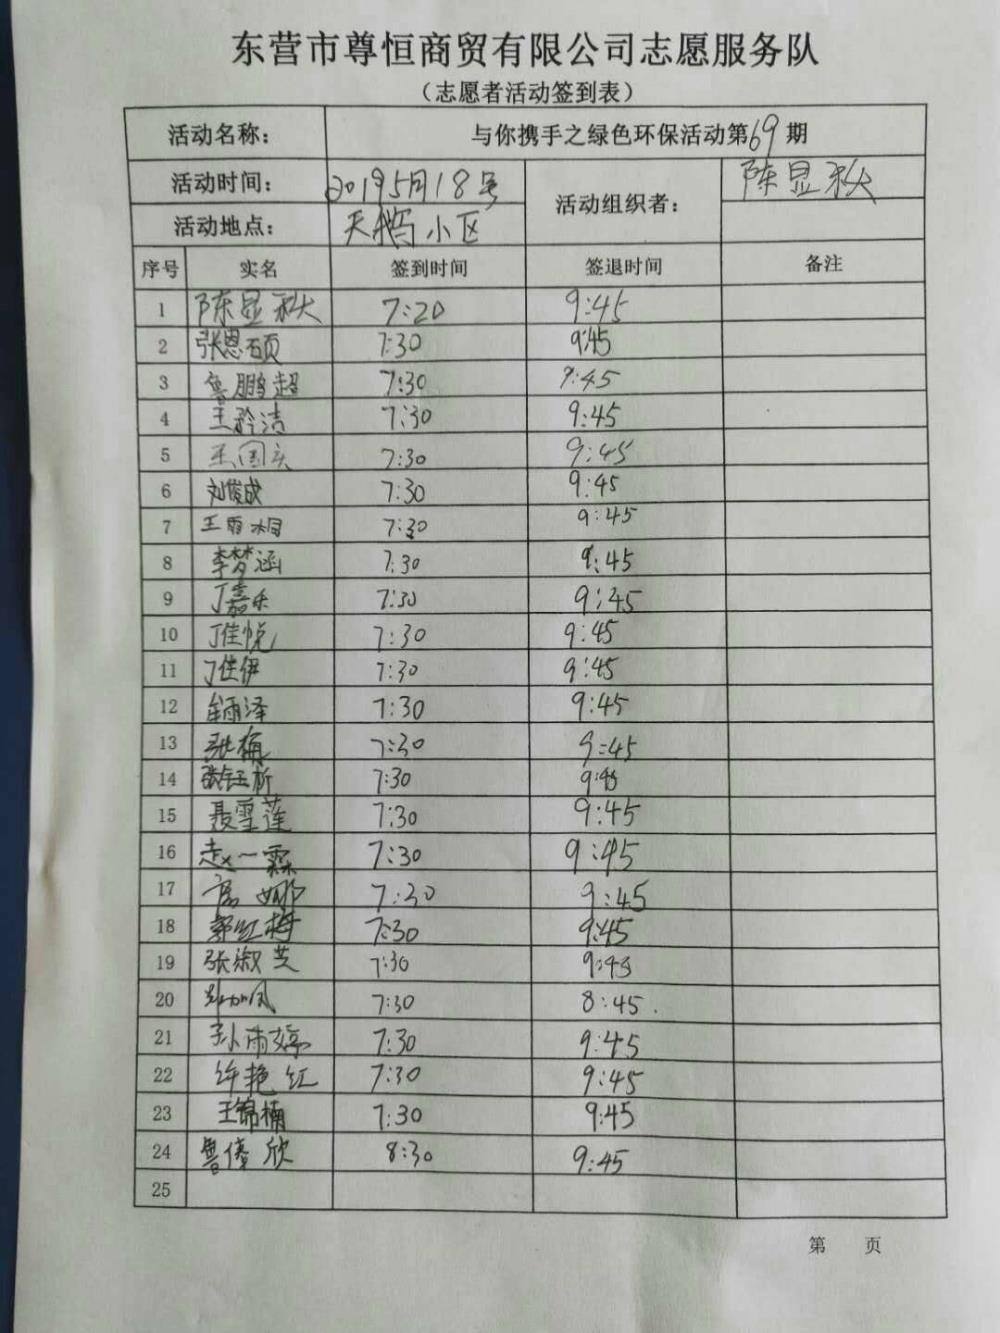 东营市尊恒商贸有限公司志愿服务队
（志愿者活动签到表）
活动名称： 与你携手之绿色环保活动第69期
活动时间： 20195月18号 活动组织者： 陈显秋
活动地点： 天鹅小区
序号 实名 签到时间 签退时间 备注
1 陈显秋 7:20 9:45
2 张恩硕 7:30 9:45
3 鲁鹏超 7:30 9:45
4 王矜洁 7:30 9:45
5 王国庆 7:30 9:45
6 刘俊成 7:30 9:45
7 王雨桐 7:30 9:45
8 李梦涵 7:30 9:45
9 丁嘉乐 7:30 9:45
10 丁佳悦 7:30 9:45
11 丁佳伊 7:30 9:45
12 牟雨泽 7:30 9:45
13 张梅 7:30 9:45
14 7:30 9:45
15 聂雪莲 7:30 9:45
16 赵一霖 7:30 9:45
17 7:30 9:45
18 郭红梅 7:30 9:45
19 张淑芝 7:30 9:45
20 7:30 8:45
21 孙雨婷 7:30 9:45
22 许艳红 7:30 9:45
23 王锦楠 7:30 9:45
24 鲁 欣 8:30 9:45
25
第 页